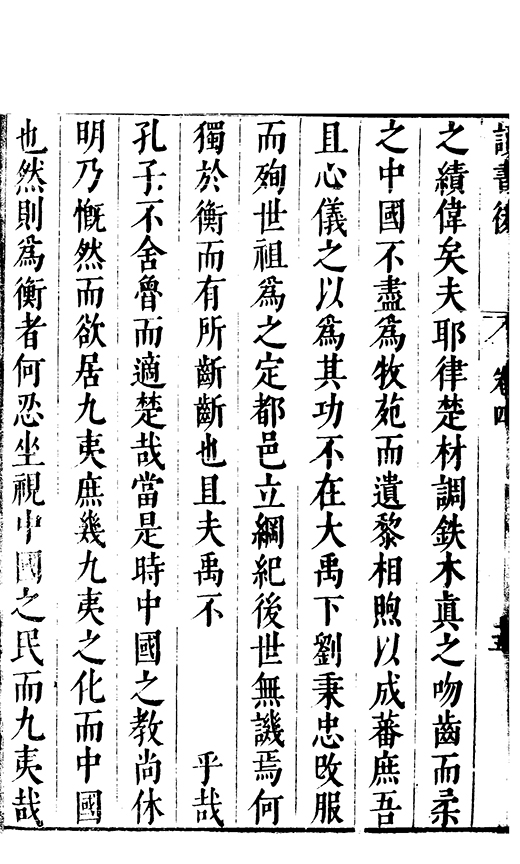 讀書後 卷四 十五
之績偉矣夫耶律楚材調鉄木真之吻齒而柔
之中國不盡為牧苑而遺黎相煦以成蕃庶吾
且心儀之以為其功不在大禹下劉秉忠改服
而殉世祖為之定都邑立綱紀後世無譏焉何
獨於衡而有所齗齗也且夫禹不 乎哉
孔子不舍魯而適楚哉當是時中國之教尚休
明乃慨然而欲居九夷庶幾九夷之化而中國
也然則為衡者何忍坐視中國之民而九夷哉